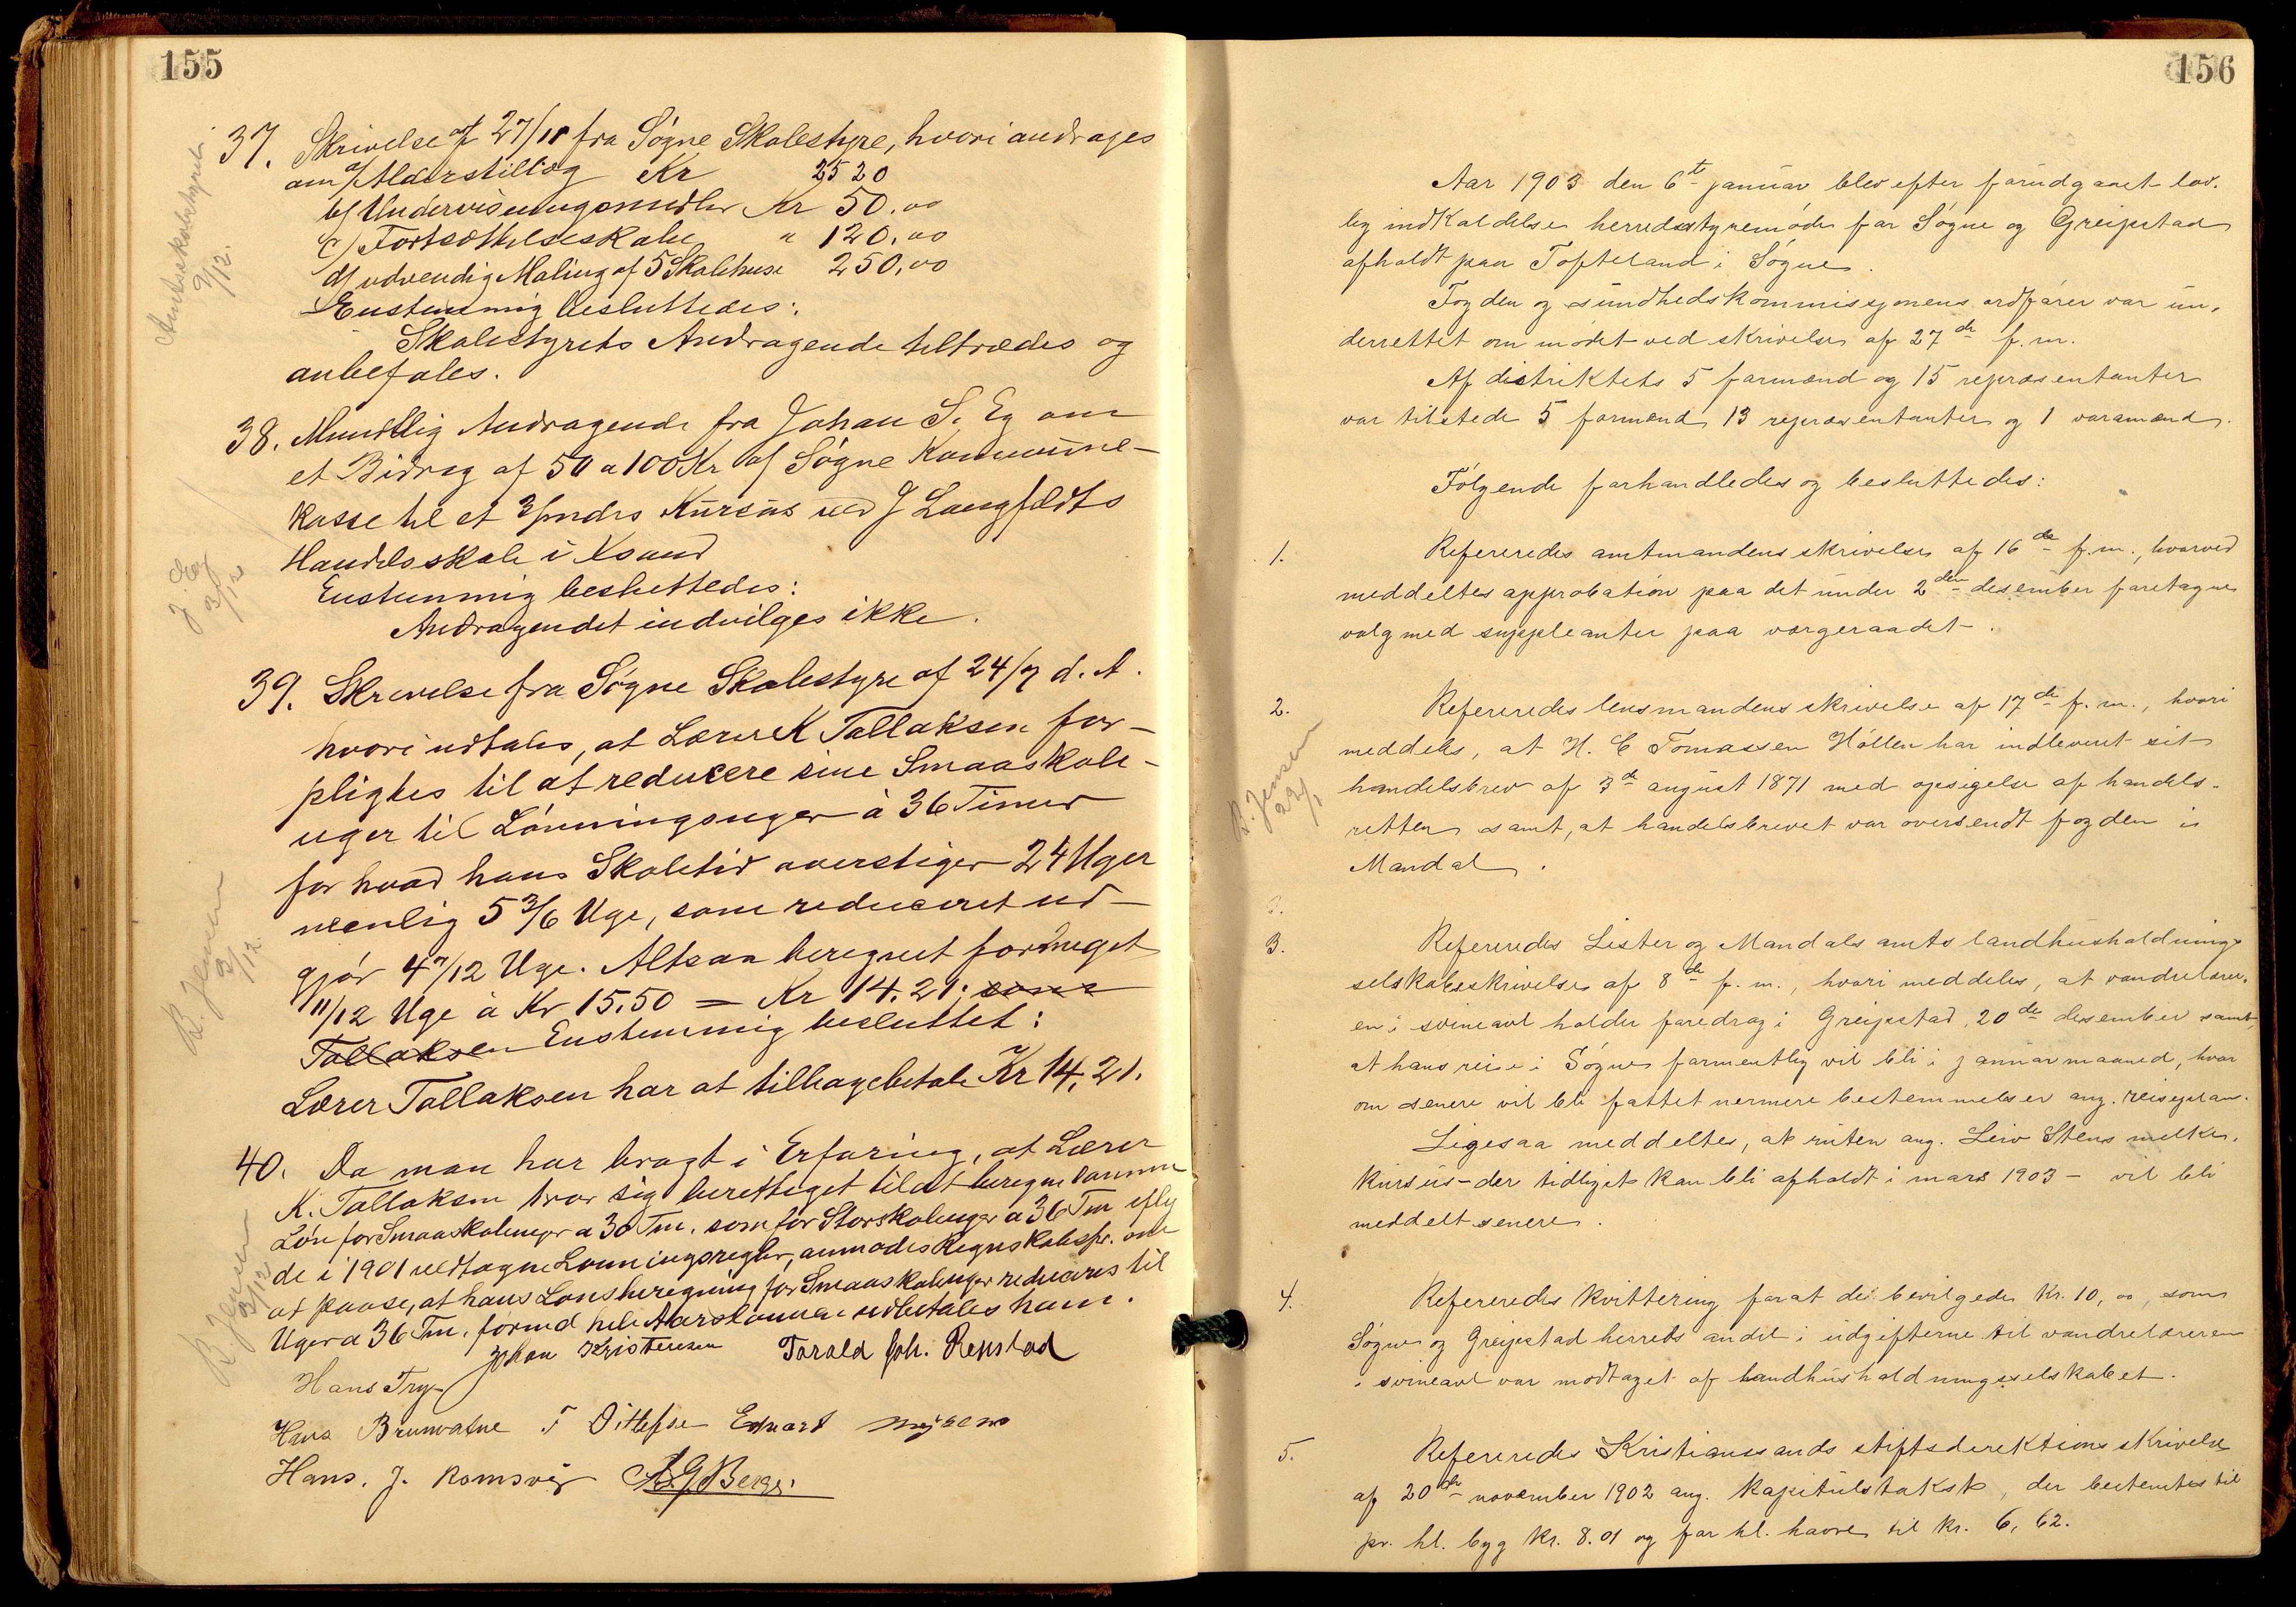 155
37. Skrivelse af 27/11 fra Søgne Skolestyre, hvori andrages
om a/ Alderstillæg Kr 2520
b/ Undervisningsmidler Kr 50.00
c/ Fortsættelseskole " 120,00
d/ udvendig Maling af 5 Skolehuse 250,00
Enstemmig besluttedes:
Skolestyrets Andragende tiltrædes og
anbefales.
Amtsskolestyret
9/12.
38. Mundtlig Andragende fra Johan S. Eg om
et Bidrag af 50 a 100 Kr af Søgne Kommune-
kasse til et 3/mdrs Kursus ved J Langfeldts
Handelsskole i Ksand
Enstemmig besluttedes:
Andragendet indvilges ikke.
J. Eg
3/12
39. Skrivelse fra Søgne Skolestyre af 24/7 d. A.
hvori udtales, at Lærer K Tallaksen for-
pligtes til at reducere sine Smaaskole-
uger til Lønningsuger à 36 Timer
for hvad hans Skoletid overstiger 24 Uger
nemlig 5 3/6 Uge, som reduceret ud-
gjør 4 7/12 Uge. Altsaa beregnet formeget
11/12 Uge à Kr 15.50 = Kr 14.21. som
Tallaksen Enstemmig besluttet:
Lærer Tallaksen har at tilbagebetale Kr 14,21.
B. Jensen
3/12.
40. Da man har bragt i Erfaring, at Lærer
K. Tallaksen tror sig berettiget til at beregne samme
Løn for Smaaskoleuger a 30 Tm. som for Storskoleuger a 36 Tm iflg
de i 1901 vedtagne Lønningsregler, anmodes Regnskabsf. om
at paase, at hans Lønsberegning for Smaaskoleuger reduceres til
Uger a 36 Tm. forind hele Aarslønnen udbetales ham.
B. Jensen
3/12
Johan Kristensen Torald Joh. Repstad
Hans Try
Hans Brunvatne T Ditlefsen Edvart
Hans. J. Romsvig A G Berge.
156
Aar 1903 den 6t januar blev efter forudgaaet lov-
lig indkaldelse herredsstyremøde for Søgne og Greipstad
afholdt paa Tofteland i Søgne.
Fogden og sundhedskommissjonens ordfører var un-
derrettet om mødet ved skrivelse af 27de f. m.
Af distriktets 5 formænd og 15 repræsentanter
var tilstede 5 formænd, 13 repræsentanter og 1 varamand.
Følgende forhandledes og besluttedes:
1. Refereredes amtmandens skrivelse af 16de f. m., hvorved
meddeltes approbation paa det under 2den desember foretagne
valg med suppleanter paa vergeraadet.
2. Refereredes lensmandens skrivelse af 17de f. m., hvori
meddeles, at H. C Tomassen Høllen har indleveret sit
handelsbrev af 3de august 1871 med opsigelse af handels-
retten samt, at handelsbrevet var oversendt fogden i
Mandal.
B. Jensen
23/1
3.
3. Refereredes Lister og Mandals amts landhusholdnings
selskabs skrivelse af 8de f. m., hvori meddeles, at vandrelærer-
en i svineavl holder foredrag i Greipstad, 20de desember samt,
at hans reise i Søgne formentlig vil bli i januar maaned, hvor
om senere vil bli fattet nærmere bestemmelser ang. reiseplan.
Ligesaa meddeltes, at ruten ang. Leiv Stens melke-
kursus - der tidligst kan bli afholdt i mars 1903 - vil bli
meddelt senere.
4. Refereredes kvittering for at de bevilgede Kr. 10,00, som
Søgne og Greipstad herreds andel i udgifterne til vandrelæreren
i svineavl var modtaget af landhusholdningsselskabet.
5. Refereredes Kristianssands stiftsdirektions skrivelse
af 20de november 1902 ang. kapitulstakst, der bestemtes til
pr. hl. byg Kr. 8.01 og for hl. havre til Kr. 6,62.